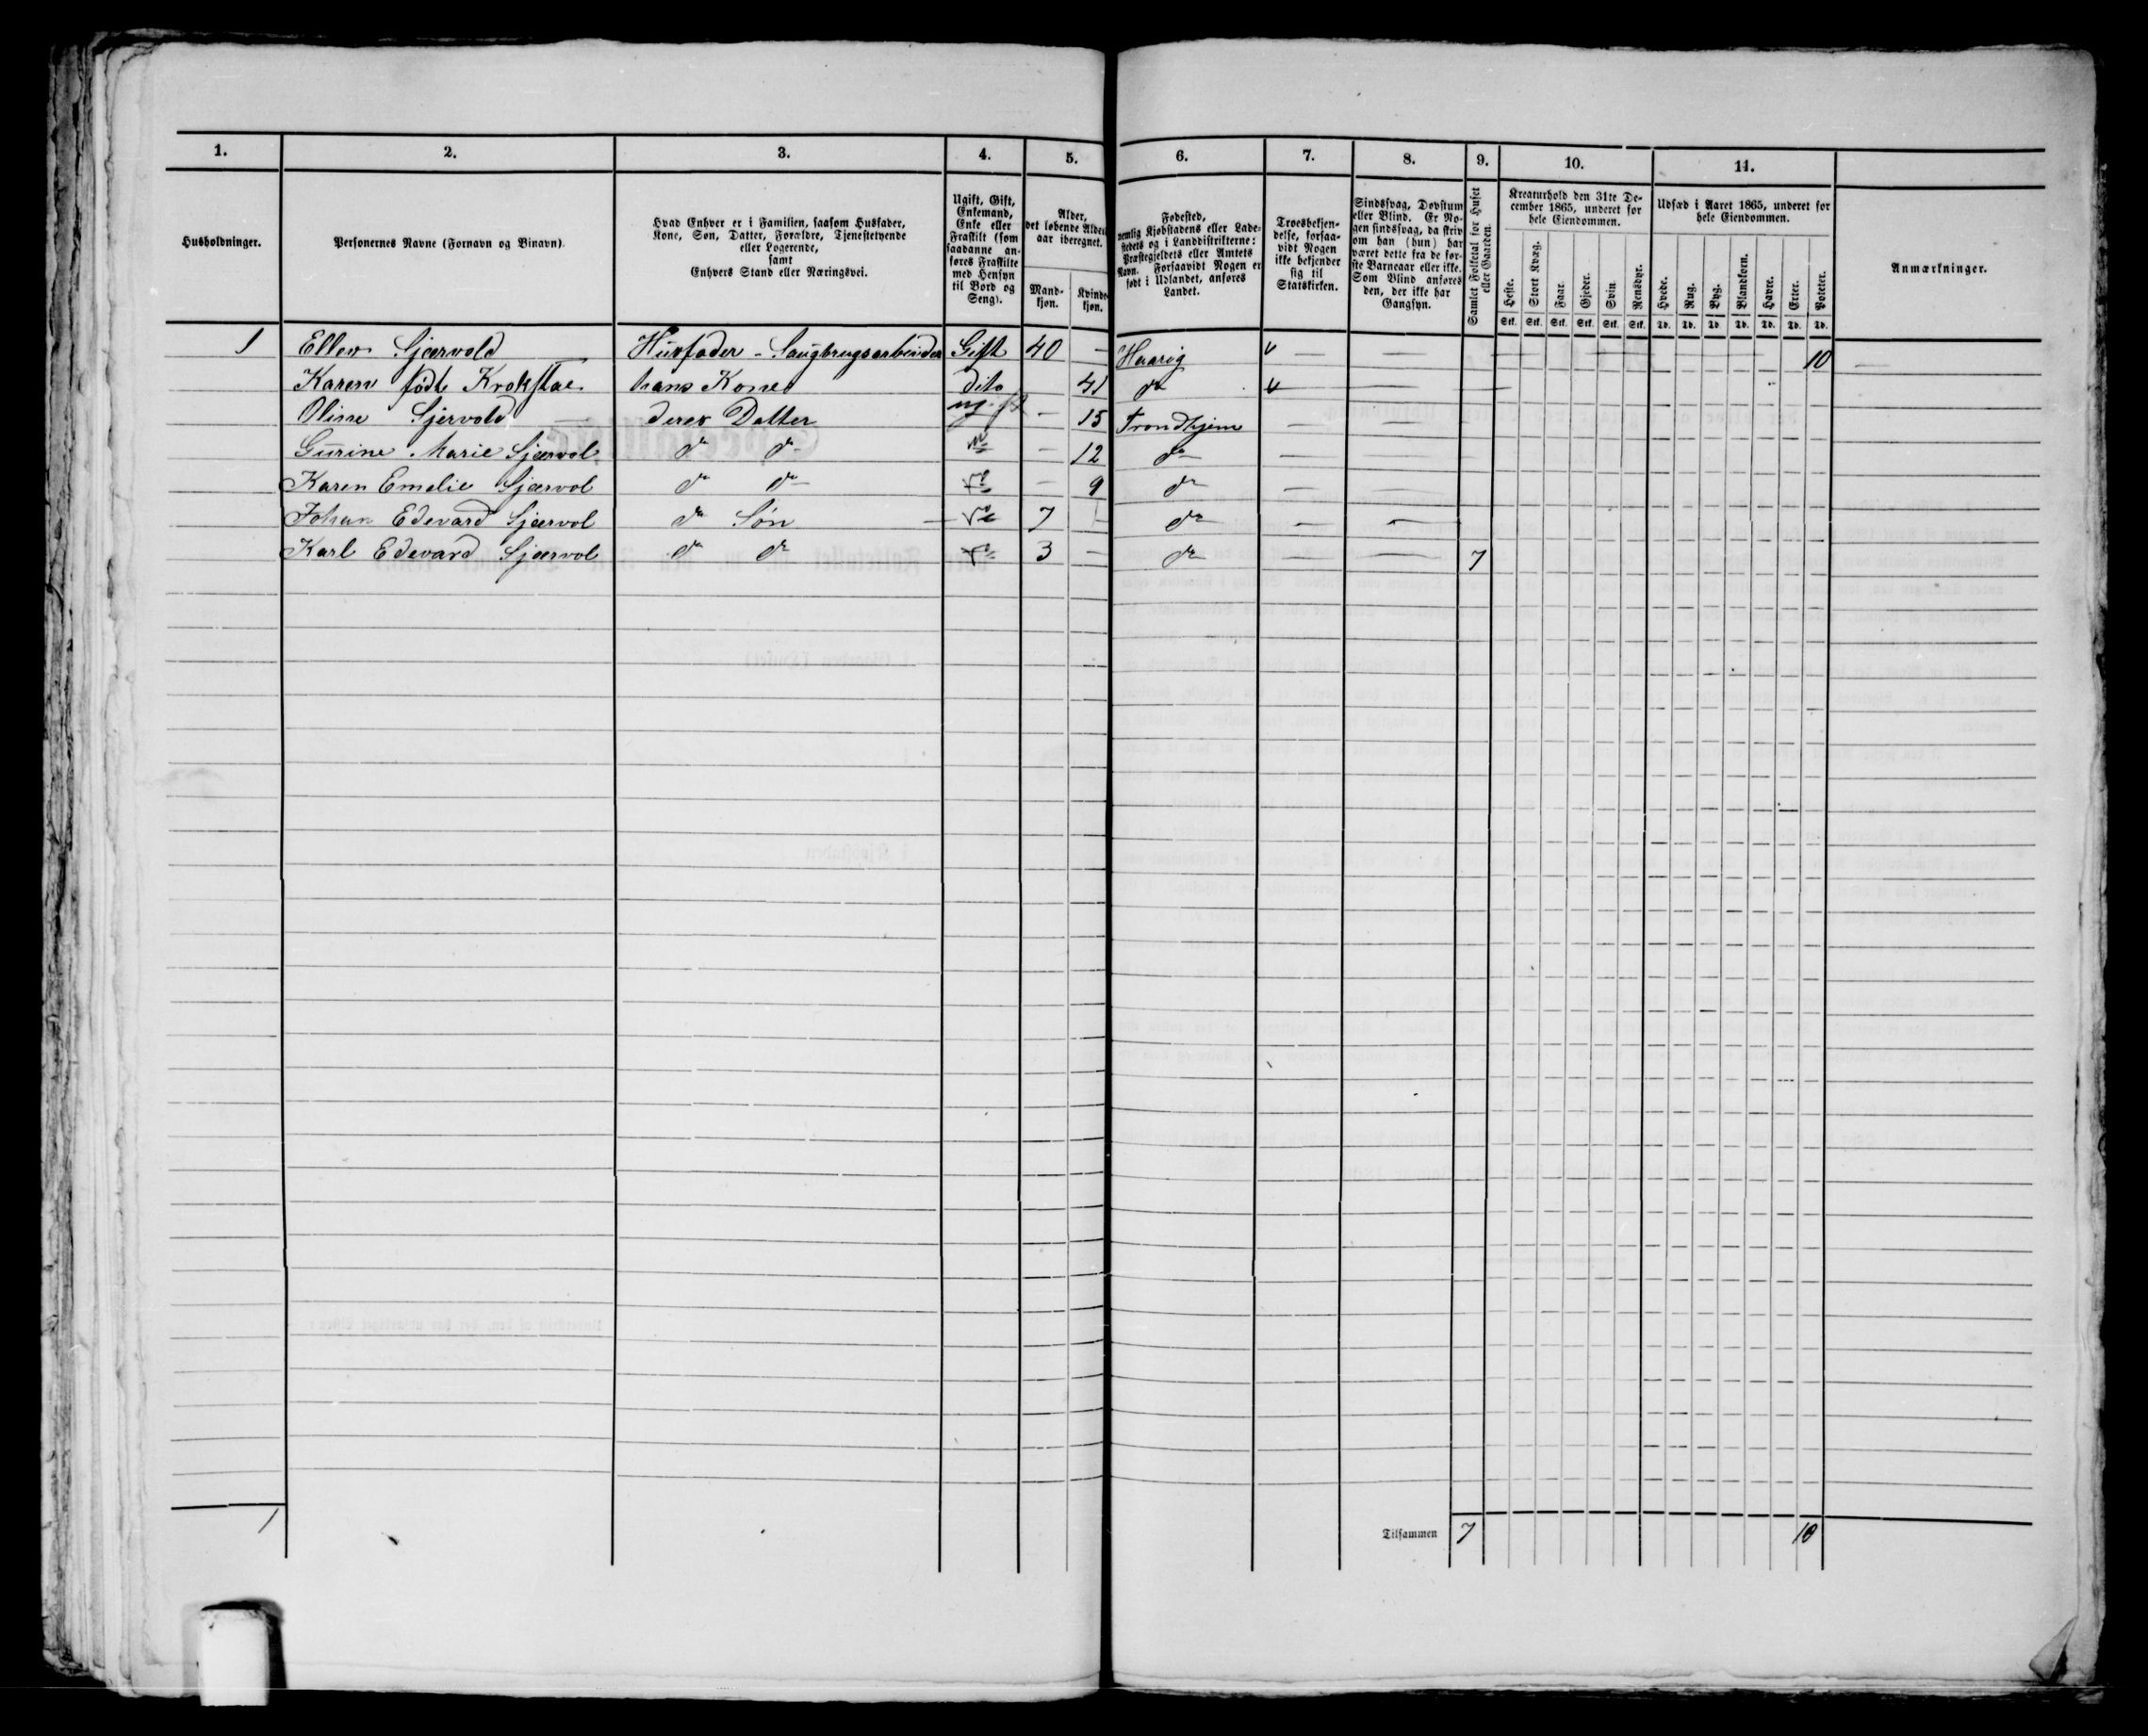 1. 2. 3. 4. 5. 6. 7. 8. 9. 10. 11.
Husholdninger.
Personernes Navne (Fornavn og Binavn).
Hvad Enhver er i Familien, saasom Husfader,
Kone, Søn, Datter, Forældre, Tjenestetyende
eller Logerende,
samt
Enhvers Stand eller Næringsvei.
Ugift, Gift,
Enkemand,
Enke eller
Fraskilt (som
saadanne an-
føres Fraskilte
med Hensyn
til Bord og
Seng).
Alder,
det løbende Alders-
aar iberegnet.
Mand-
kjøn.
Kvinde-
kjøn.
Fødested,
nemlig Kjøbstadens eller Lade-
stedets og i Landdistrikterne:
Præstegjeldets eller Amtets
Navn. Forsaavidt Nogen er
født i Udlandet, anføres
Landet.
Troesbekjen-
delse, forsaa-
vidt Nogen
ikke bekjender
sig til
Statskirken.
Sindssvag, Døvstum
eller Blind. Er No-
gen sindssvag, da skriv
om han (hun) har
været dette fra de før-
ste Barneaar eller ikke.
Som Blind anføres
den, der ikke har
Gangsyn.
Samlet Folketal for Huset
eller Gaarden.
Kreaturhold den 31te De-
cember 1865, underet for
hele Eiendommen.
Heste. Stort Kvæg. Faar. Gjeder. Svin. Rensdyr.
Stk. Stk. Stk. Stk. Stk. Stk.
Udsæd i Aaret 1865, underet for
hele Eiendommen.
Hvede. Rug. Byg. Blandkorn. Havre. Erter. Poteter.
Td. Td. Td. Td. Td. Td. Td.
Anmærkninger.
1 Ellev Sjærvold Husfader - Saugbrugsarbeider Gift 40 — Haarig — — 10
Karen født Krokstae hans Kone dito 41 do — —
Oline Sjervold deres Datter ugift - 15 Trondhjem — —
Gurine Marie Sjærvol do do — 12 do
Karen Emelie Sjærvol do do — 9 do — —
Johan Edevard Sjærvol do Søn 7 do — —
Karl Edevard Sjærvol do do 3 — do — — 7
1 Tilsammen 7 10